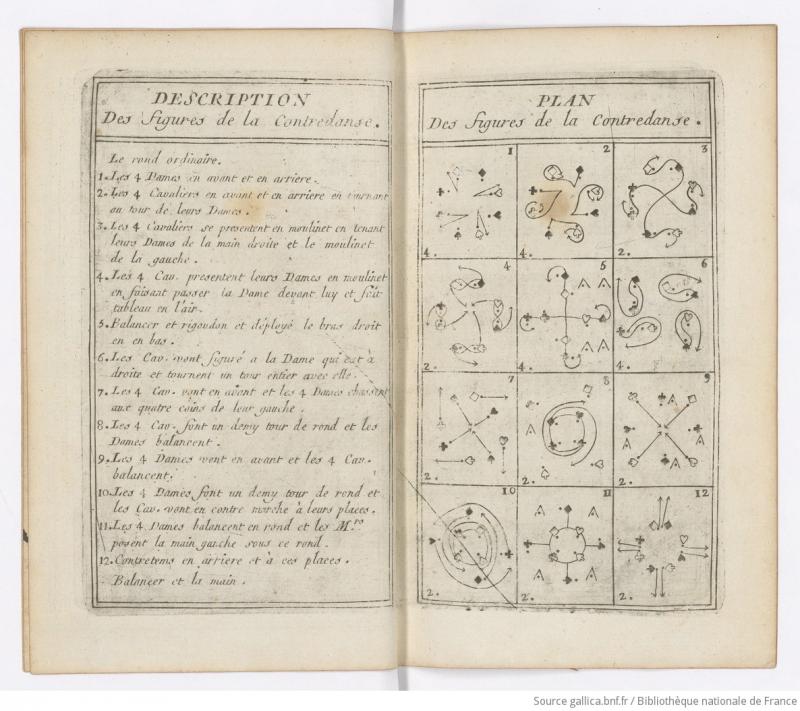 DESCRIPTION
Des figures de la Contredanse.
Le rond ordinaire.
1. Les 4 Dames en avant et en arriere.
2. Les 4 Cavaliers en avant et en arriere en tournant
au tour de leurs Dames.
3. Les 4 Cavaliers se presentent en moulinet en tenant
leurs Dames de la main droite et le moulinet
de la gauche.
4. Les 4 Cav. presentent leurs Dames en moulinet
en faisant passer la Dame devant luy et fait
tableau en l'air.
5. Balancer et rigaudon et déployé le bras droit
en en bas.
6. Les Cav. vont figuré a la Dame qui est à
droite et tournent un tour entier avec elle.
7. Les 4 Cav. vont en avant et les 4 Dames chassent
aux quatre coins de leur gauche.
8. Les 4 Cav. font un demy tour de rond et les
Dames balancent.
9. Les 4 Dames vont en avant et les 4 Cav.
balancent.
10. Les 4 Dames font un demy tour de rond et
les Cav. vont en contre marche à leurs places.
11. Les 4 Dames balancent en rond et les Mrs
posent la main gauche sous ce rond.
12. Contretems en arriere et à ces places.
Balancer et la main.
PLAN
Des figures de la Contredanse.
1 2 3
4. 4. 2.
4 5 6
2. 4. 4.
7 8 9
2. 2. 2.
10 11 12
2. 2. 2.
Source gallica.bnf.fr / Bibliothèque nationale de France